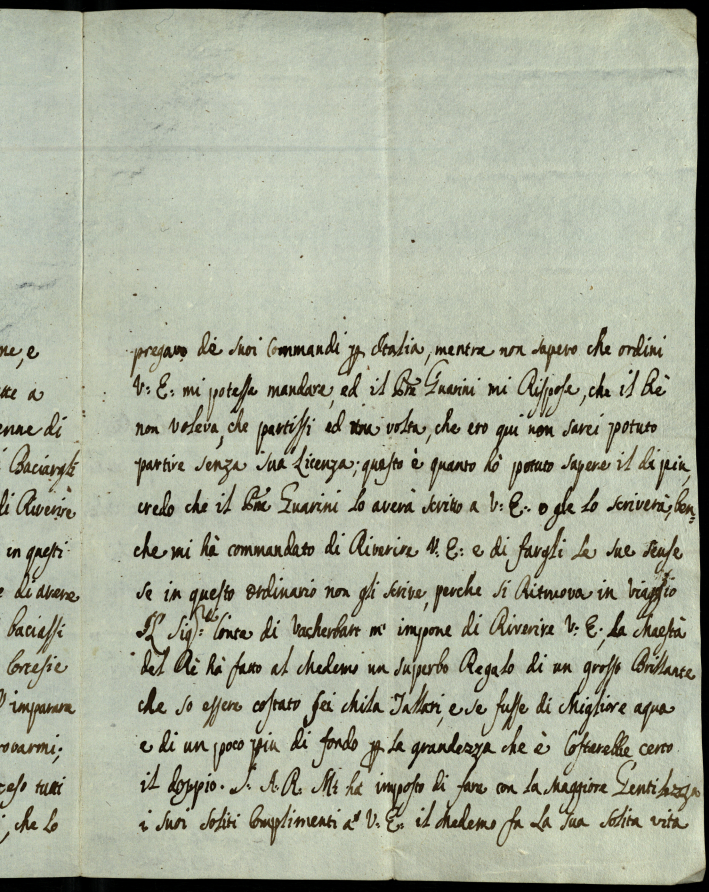 ne, e
a
enne di
Baciargli
di Riverire
in questi
e di avere
baciassi
Cortesie
imparare
rovarmi;
zeso tutti
, che lo
pregavo de suoi Commandi p Italia, mentre non sapevo che ordini
V: E: mi potessa mandare, ed il Pre Guarini mi Rispose, che il Rè
non voleva, che partissi ed una volta, che ero qui non sarei potuto
partire senza sua Licenza; questo è quanto hò potuto sapere il di piu,
credo che il Pre Guarini lo averà scritto a V: E: o gle lo scriverà, ben=
che mi hà commandato di Riverire V: E: e di fargli le sue scuse
se in questo ordinario non gli scrive, perche si Ritruova in viaggio
Il Sigre Conte di Vacherbart m' impone di Riverire V: E; la Maestà
del Rè hà fatto al Medemo un superbo Regalo di un grosso Brillante
che so essere costato sei mila Tallari, e se fusse di Migliore aqua
e di un poco piu di fondo p la grandezza che è Costarebbe certo
il doppio. S. A. R. Mi ha imposto di fare con la Maggiore Gentilezza
i suoi soliti Complimenti a V: E: il Medemo fa la sua solita vita